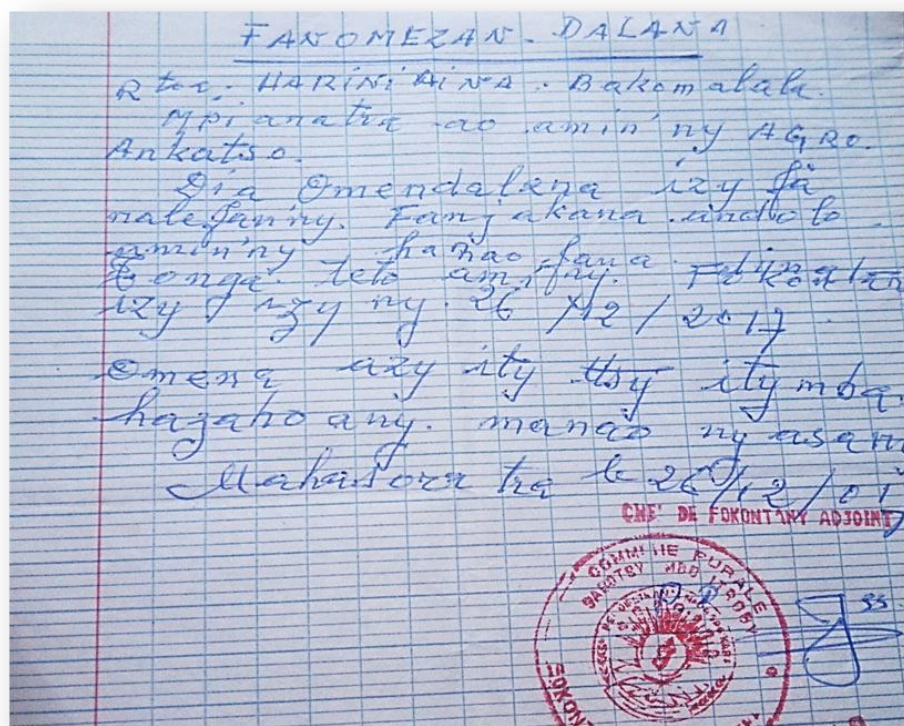 FANOMEZAN-DALANA
Rtoa. HARINIAINA. Bakomalala.
Mpianatra ao amin'ny AGRO.
Ankatso.
Dia Omendalana izy fa
nalefan'ny. Fanjakana. indolo
amin'ny
Tonga. teto amin'ny.
izy izy ny. 26/12/2017
Omena azy ity ity mba.
hazahoany. manao ny asany
Mahasoratra le 26/12/017
CHEF DE FOKONTANY ADJOINT
COMMUNE RURALE
FOKON